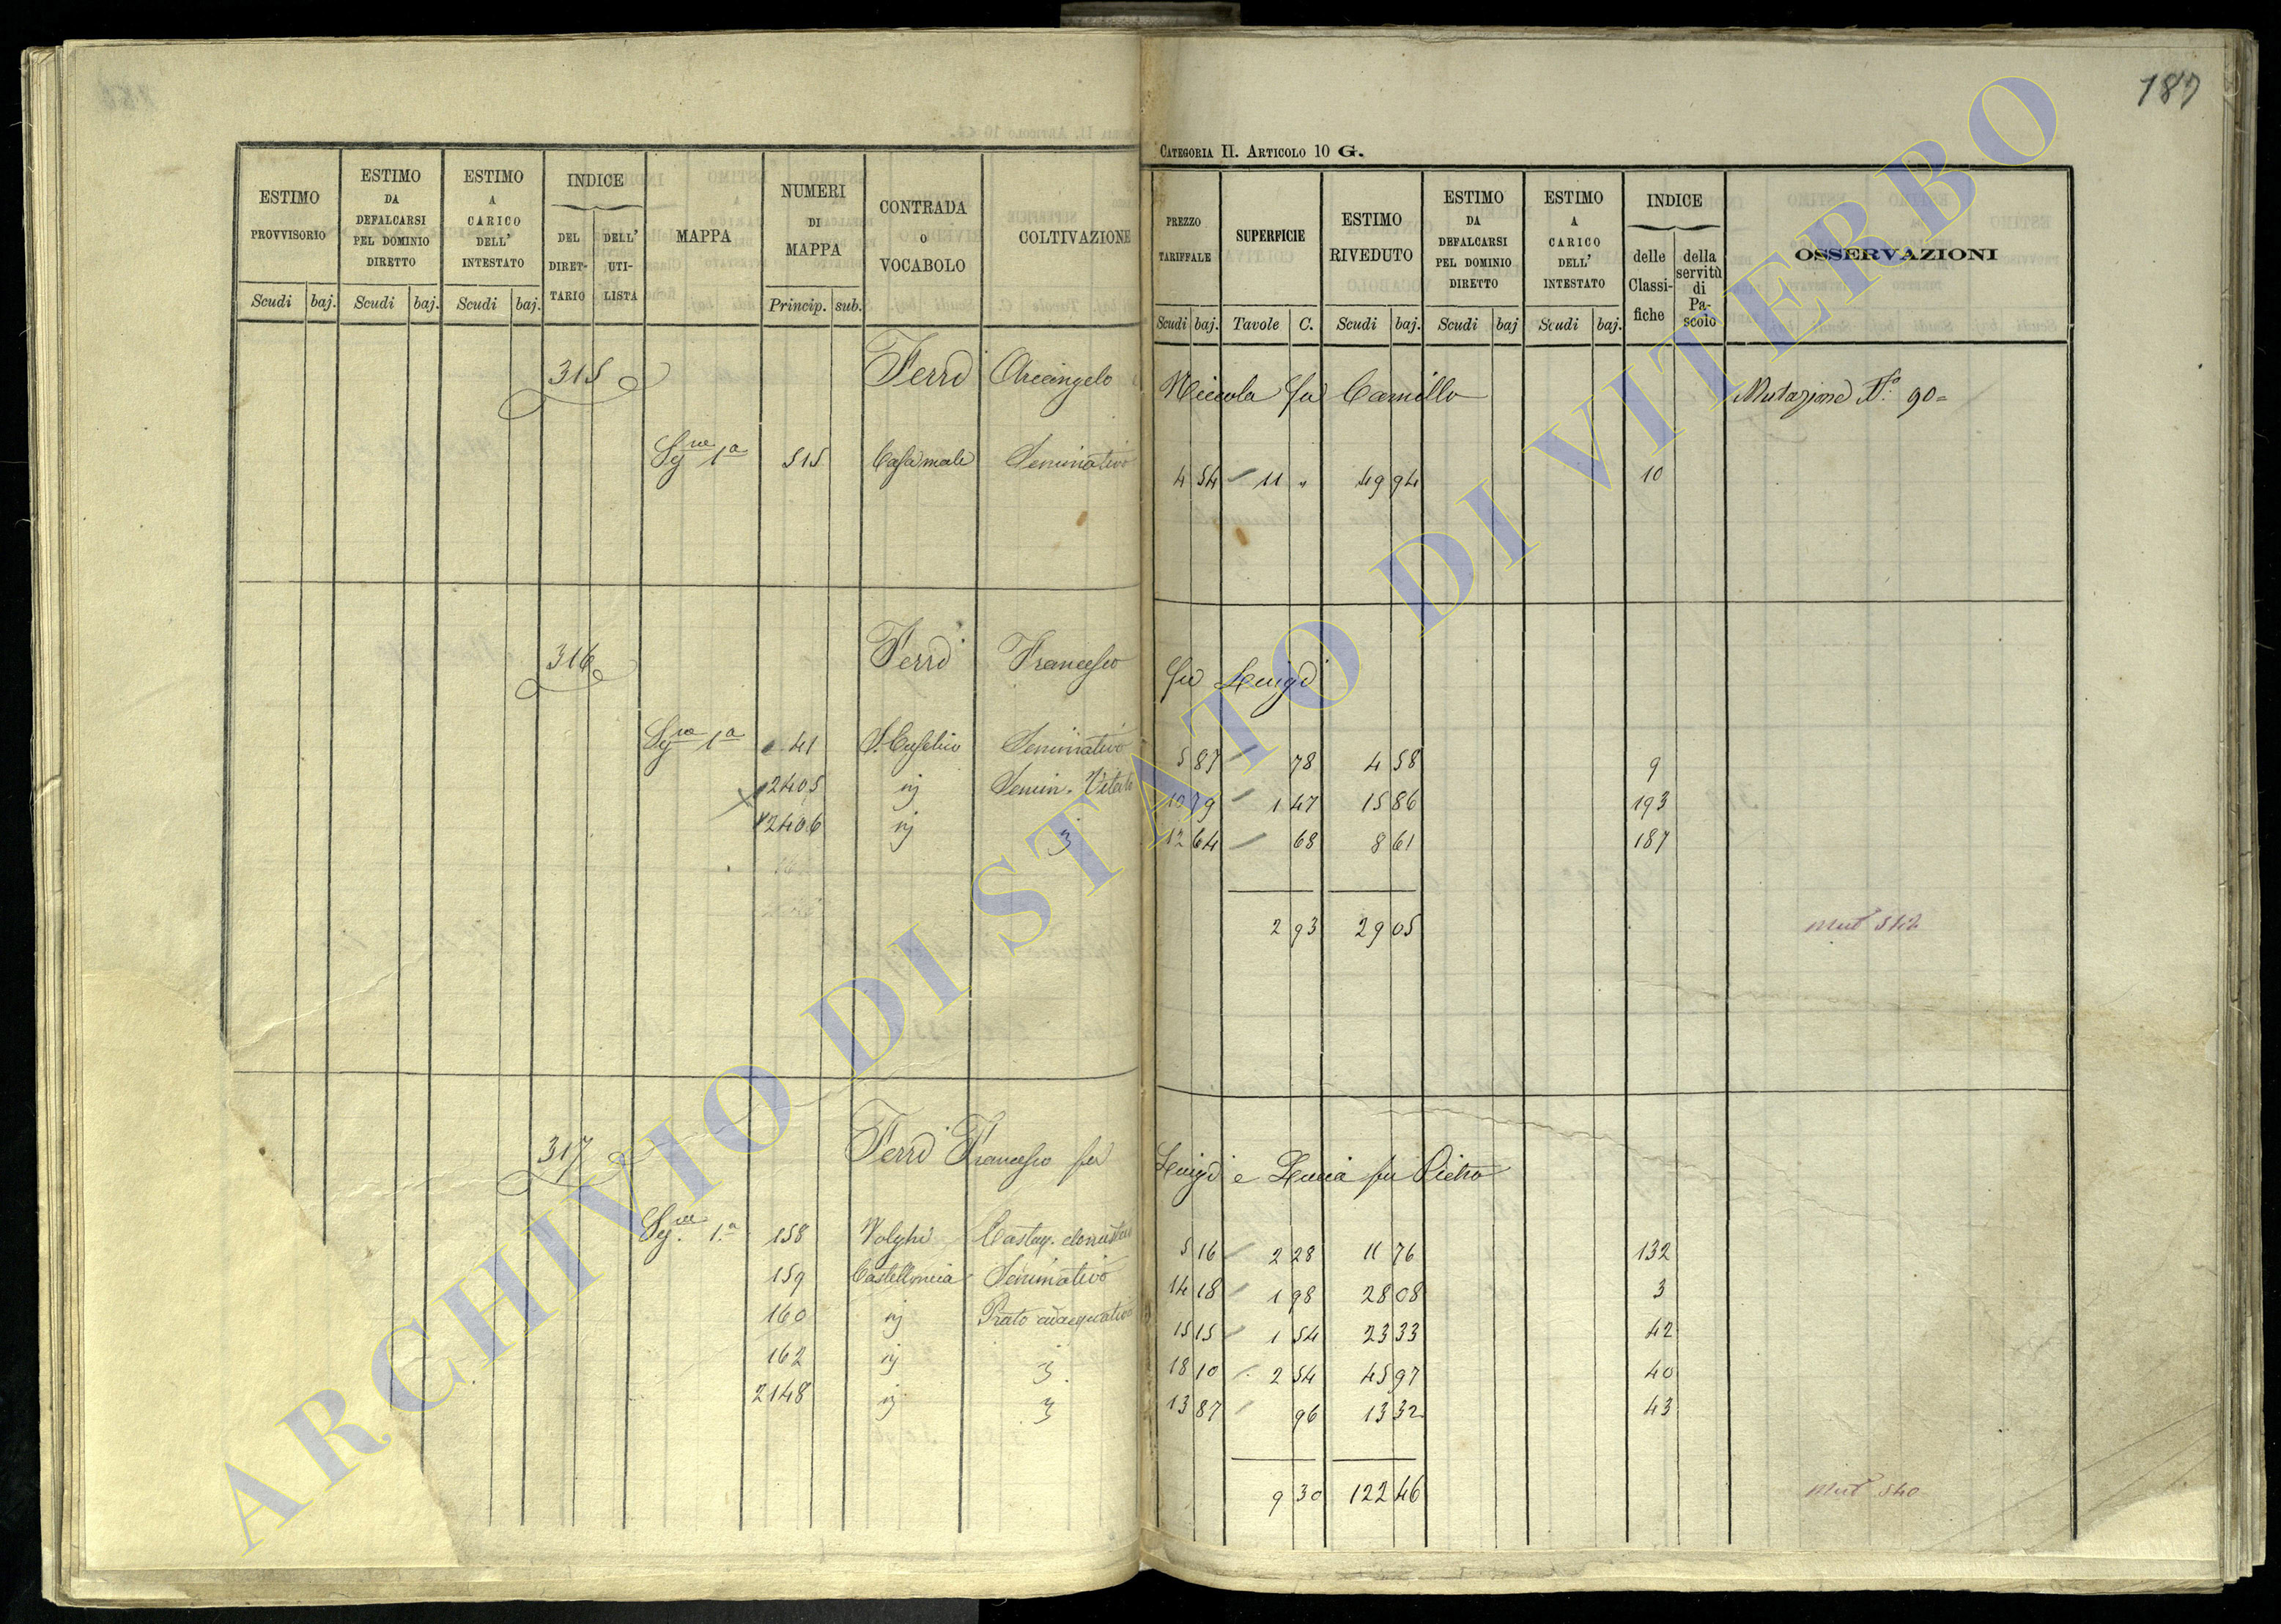 187
CATEGORIA II. ARTICOLO 10 G.
ESTIMO PROVVISORIO Scudi baj. ESTIMO DA DEFALCARSI PEL DOMINIO DIRETTO Scudi baj. ESTIMO A CARICO DELL' INTESTATO Scudi baj. INDICE DEL DIRETTARIO DELL' UTILISTA MAPPA NUMERI DI MAPPA Princip. sub. CONTRADA O VOCABOLO COLTIVAZIONE PREZZO TARIFFALE Scudi baj. SUPERFICIE Tavole C. ESTIMO RIVEDUTO Scudi baj. ESTIMO DA DEFALCARSI PEL DOMINIO DIRETTO Scudi baj ESTIMO A CARICO DELL' INTESTATO Scudi baj. INDICE delle Classifiche della servitù di Pascolo OSSERVAZIONI
315 Ferri Arcangelo Niccola fu Camillo Mutazione No. 90=
1a 515 Seminativo 4 54 11 " 49 94 10
316 Ferri Francesco fu Luigi
1a 41 S. Eusebio Seminativo 5 87 78 4 58 9
2405 ij Semin. Vitato 10 79 1 47 15 86 193
2406 ij 3 12 64 68 8 61 187
2 93 29 05 Mut 542
317 Ferri Francesco fu Luigi e Lucia fu Pietro
1.a 158 Castag. 5 16 2 28 11 76 132
159 Seminativo 14 18 1 98 28 08 3
160 ij Prato adacquativo 15 15 1 54 23 33 42
162 ij 3 18 10 2 54 45 97 40
2148 ij 3 13 87 96 13 32 43
9 30 122 46 Mut 540
ARCHIVIO DI STATO DI VITERBO